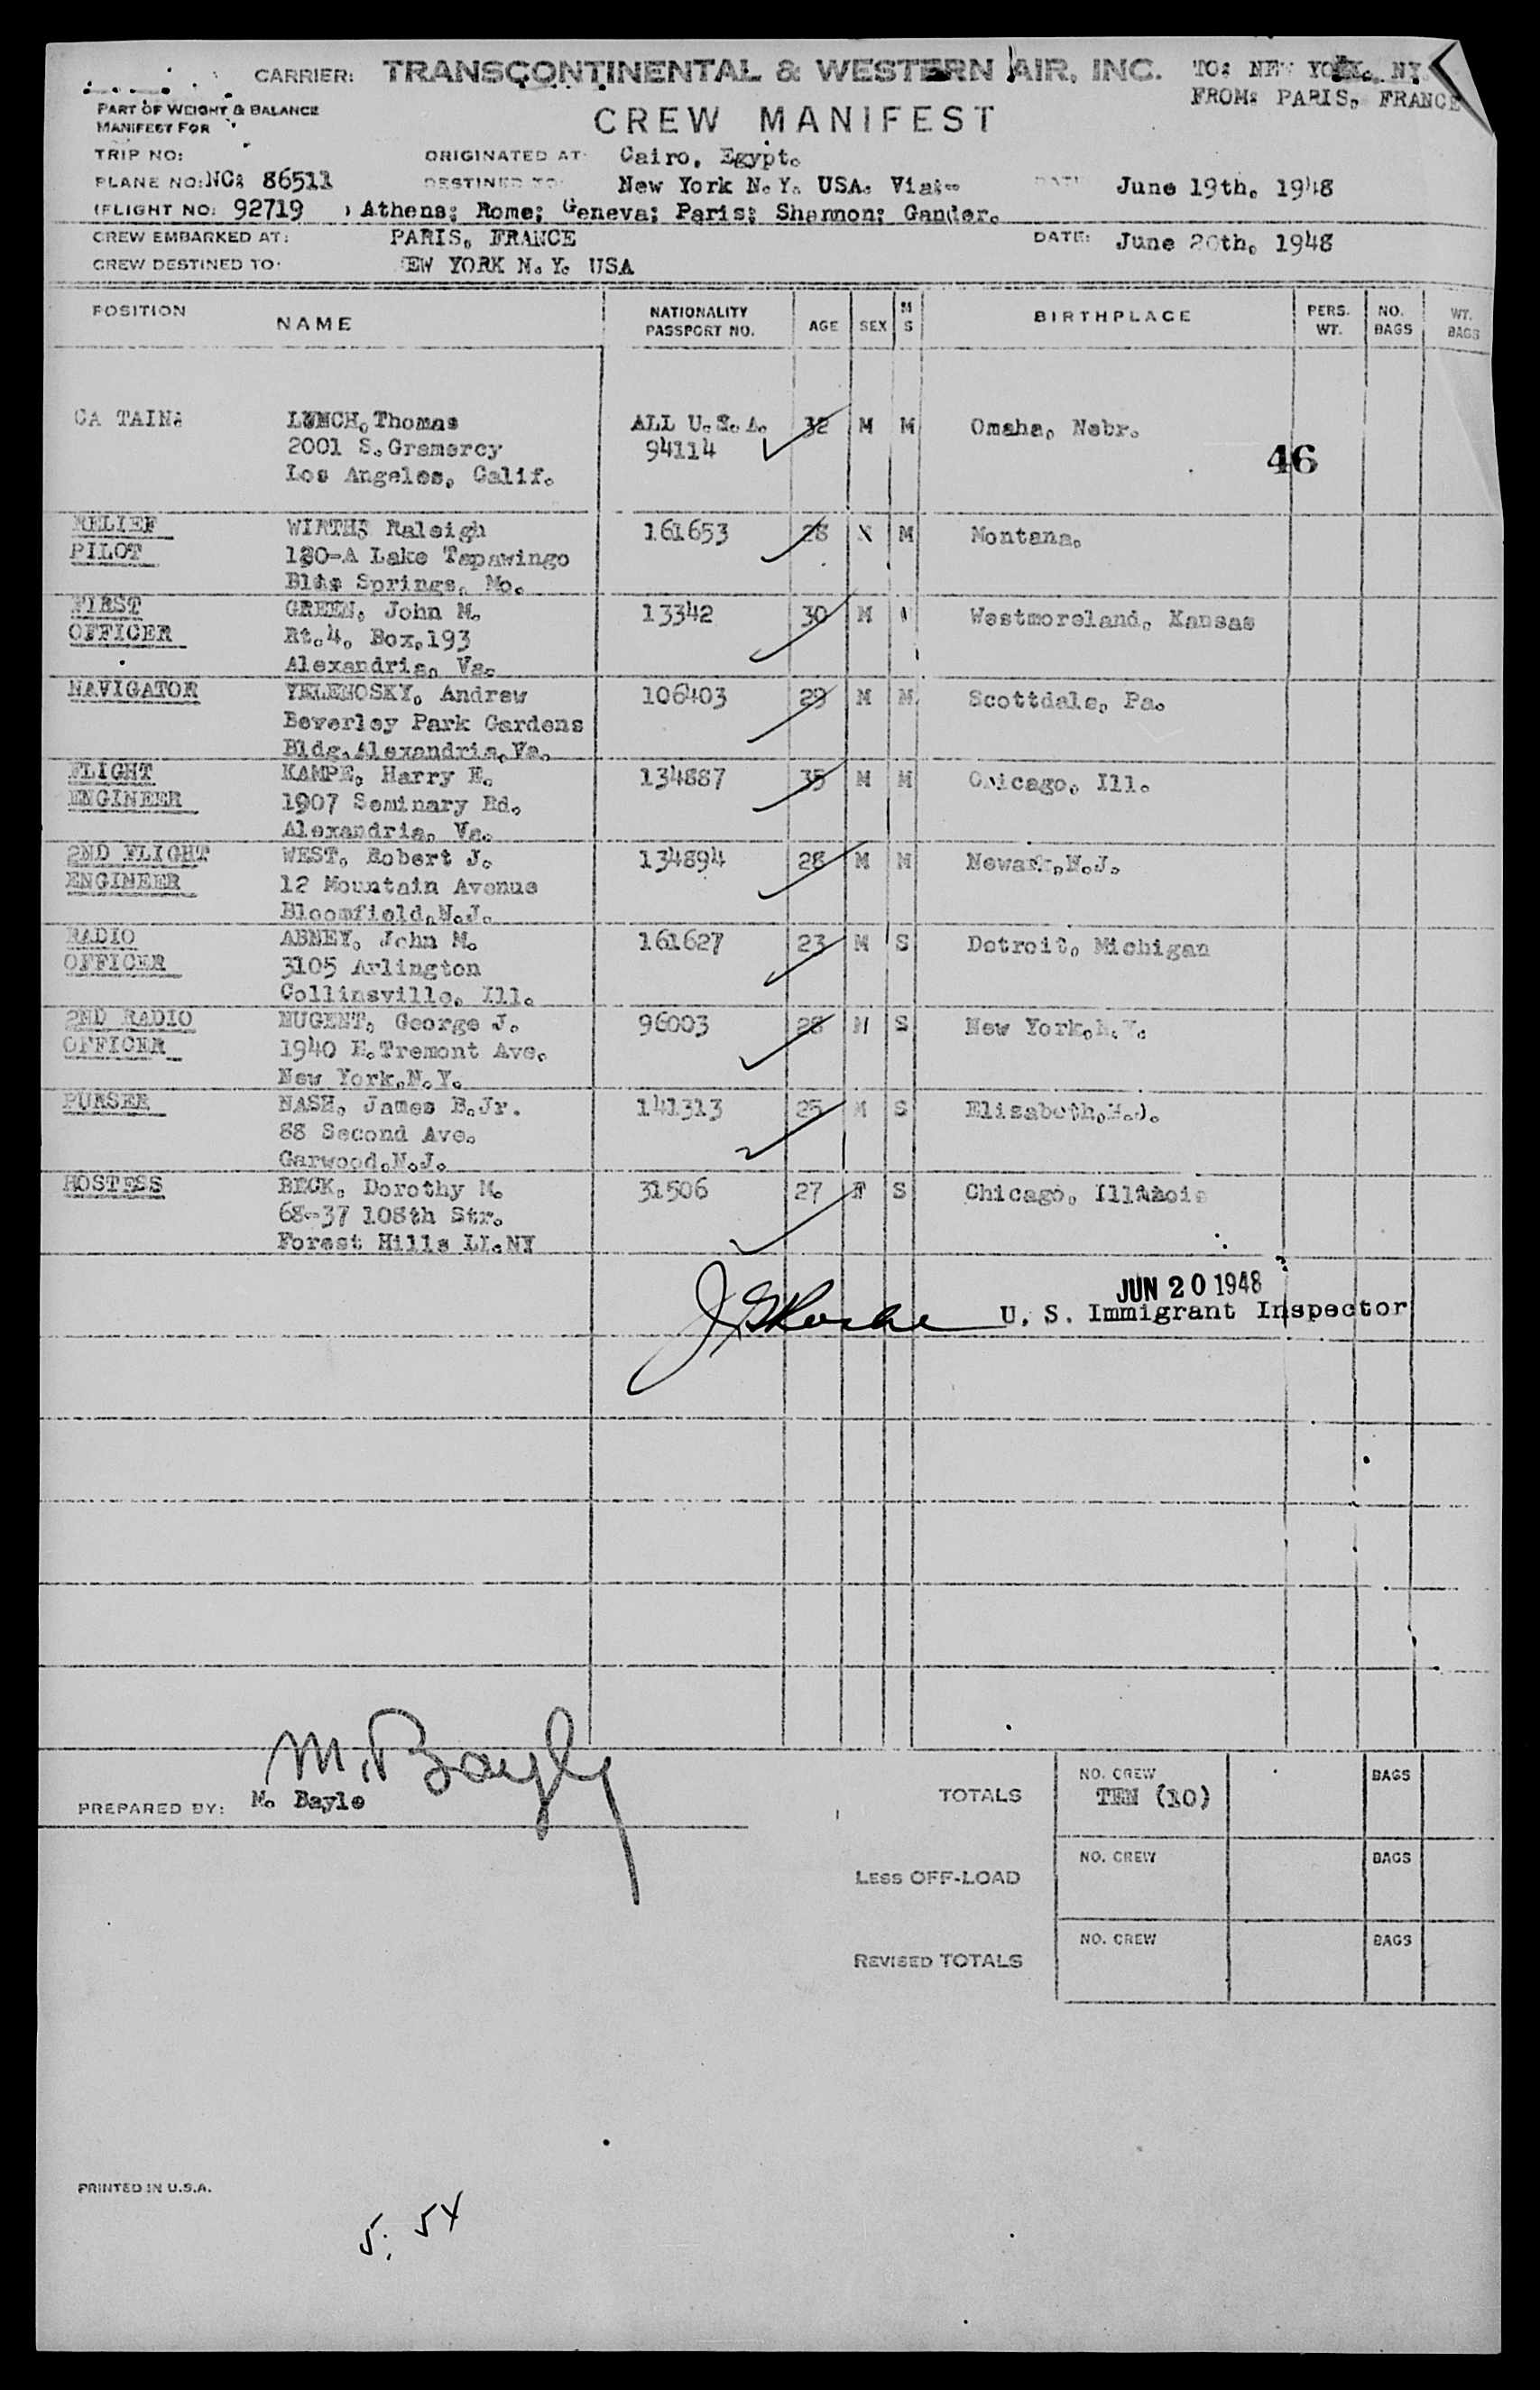 CARRIER: TRANSCONTINENTAL & WESTERN AIR, INC. TO: NEW YORK, NY.
FROM: PARIS, FRANCE
PART OF WEIGHT & BALANCE
MANIFEST FOR
CREW MANIFEST
TRIP NO: ORIGINATED AT: Cairo, Egypt.
PLANE NO: NC: 86511 DESTINED TO: New York N.Y. USA. Via:- DATE June 19th, 1948
(FLIGHT NO: 92719 ) Athens; Rome; Geneva; Paris; Shannon; Gander.
CREW EMBARKED AT: PARIS, FRANCE DATE: June 20th, 1948
CREW DESTINED TO: EW YORK N.Y. USA
POSITION NAME NATIONALITY PASSPORT NO. AGE SEX M S BIRTHPLACE PERS. WT. NO. BAGS WT. BAGS
CA TAIN: LYNCH, Thomas ALL U.S.A. 32 M M Omaha, Nebr.
2001 S. Gramercy 94114 46
Los Angeles, Calif.
RELIEF WIRTH, Raleigh 161653 28 M Montana.
PILOT 180-A Lake Tapawingo
Springs, Mo.
FIRST GREEN, John M. 13342 30 M Westmoreland, Kansas
OFFICER Rt.4, Box,193
Alexandria, Va.
NAVIGATOR YELENOSKY, Andrew 106403 29 M M Scottdale, Pa.
Beverley Park Gardens
Bldg.Alexandria,Va.
FLIGHT KAMPE, Harry E. 134887 35 M M Chicago, Ill.
ENGINEER 1907 Seminary Rd.
Alexandria, Va.
2ND FLIGHT WEST, Robert J. 134894 28 M M Newark,N.J.
ENGINEER 12 Mountain Avenue
Bloomfield,N.J.
RADIO ABNEY, John M. 161627 23 M S Detroit, Michigan
OFFICER 3105 Arlington
Collinsville, Ill.
2ND RADIO NUGENT, George J. 96003 28 M S New York,N.Y.
OFFICER 1940 E.Tremont Ave.
New York,N.Y.
PURSER NASH, James B.Jr. 141313 25 M S Elisabeth,N.J.
88 Second Ave.
Garwood,N.J.
HOSTESS BECK, Dorothy M. 31506 27 F S Chicago, Illinois
68-37 108th Str.
Forest Hills LI.NY
JUN 20 1948
U. S. Immigrant Inspector
M. Bayly
PREPARED BY: M. Bayle
TOTALS NO. CREW TEN (10) BAGS
LESS OFF-LOAD NO. CREW BAGS
REVISED TOTALS NO. CREW BAGS
PRINTED IN U.S.A.
5: 54